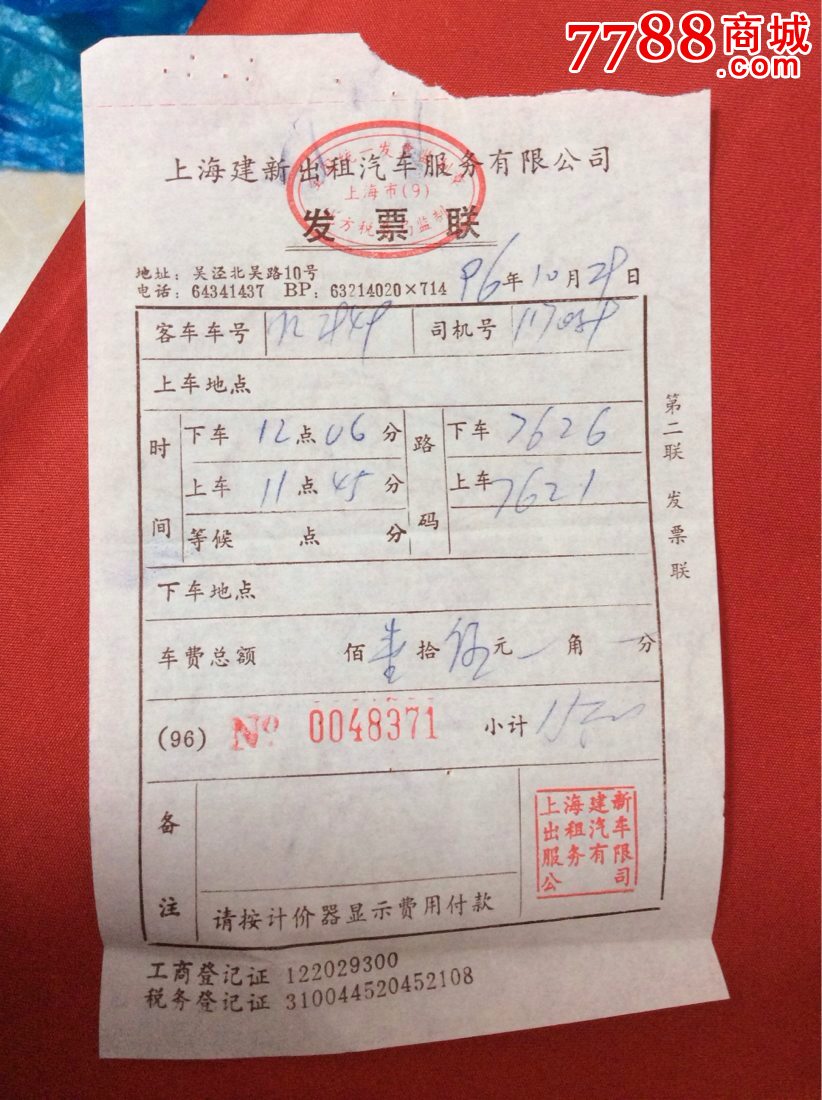 7788商城
.com
上海建新出租汽车服务有限公司
上海市(9)
发票联
地址：吴泾北吴路10号
电话：64341437 BP：63214020×714 96年10月29日
客车车号 司机号
上车地点
时间 下车 12点06分 路码 下车 7626
上车 11点45分 上车 7621
等候 点 分
下车地点
车费总额 佰壹拾伍元 角 分
(96) № 0048371 小计
备注
请按计价器显示费用付款
上海建新
出租汽车
服务有限
公司
第二联 发票联
工商登记证 122029300
税务登记证 310044520452108